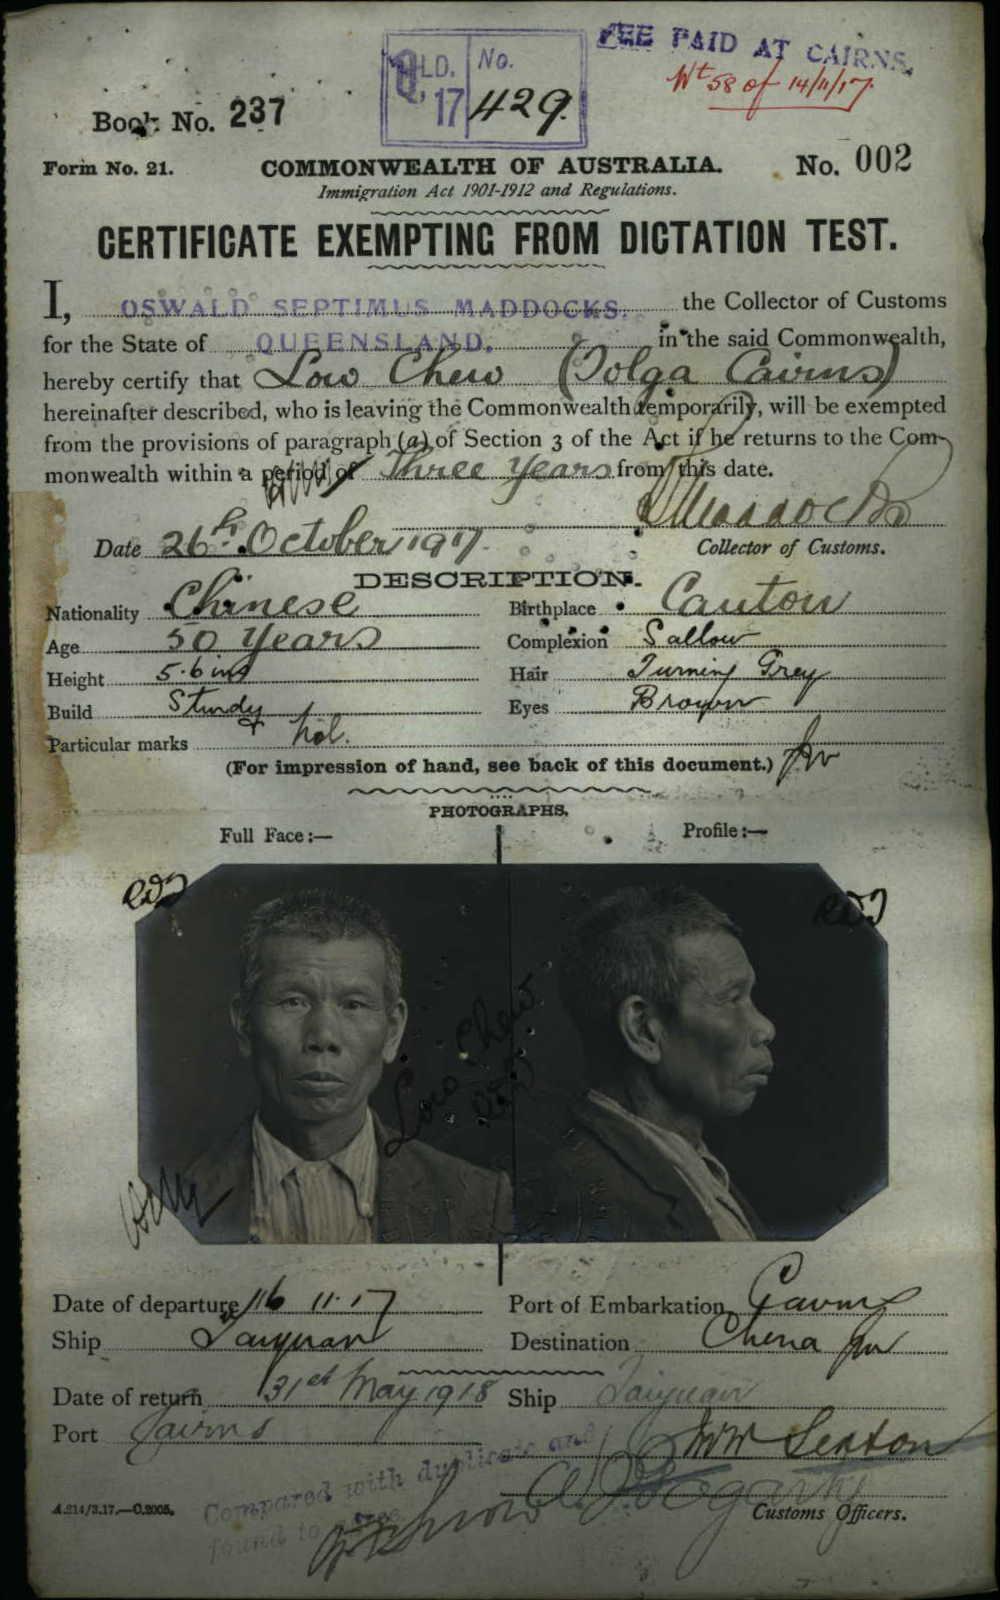 QLD. 17 No. 429.
FEE PAID AT CAIRNS.
Wt 58 of 14/11/17.
Book No. 237
Form No. 21. COMMONWEALTH OF AUSTRALIA. No. 002
Immigration Act 1901-1912 and Regulations.
CERTIFICATE EXEMPTING FROM DICTATION TEST.
I, OSWALD SEPTIMUS MADDOCKS. the Collector of Customs
for the State of QUEENSLAND. in the said Commonwealth,
hereby certify that Low Chew (Tolga Cairns)
hereinafter described, who is leaving the Commonwealth temporarily, will be exempted
from the provisions of paragraph (a) of Section 3 of the Act if he returns to the Com-
monwealth within a period of Three Years from this date.
Maddocks
Date 26th October 1917. Collector of Customs.
DESCRIPTION.
Nationality Chinese Birthplace Canton
Age 50 Years Complexion Sallow
Height 5.6 ins Hair Turning Grey
Build Sturdy Eyes Brown
Particular marks Nil.
(For impression of hand, see back of this document.)
PHOTOGRAPHS.
Full Face:— Profile:—
Low Chew
Date of departure 16 11.17 Port of Embarkation Cairns
Ship Taiyuan Destination China
Date of return 31st May 1918 Ship Taiyuan
Port Cairns
Sexton
Compared with duplicate and
found to agree
A.214/3.17.—C.2005. Customs Officers.